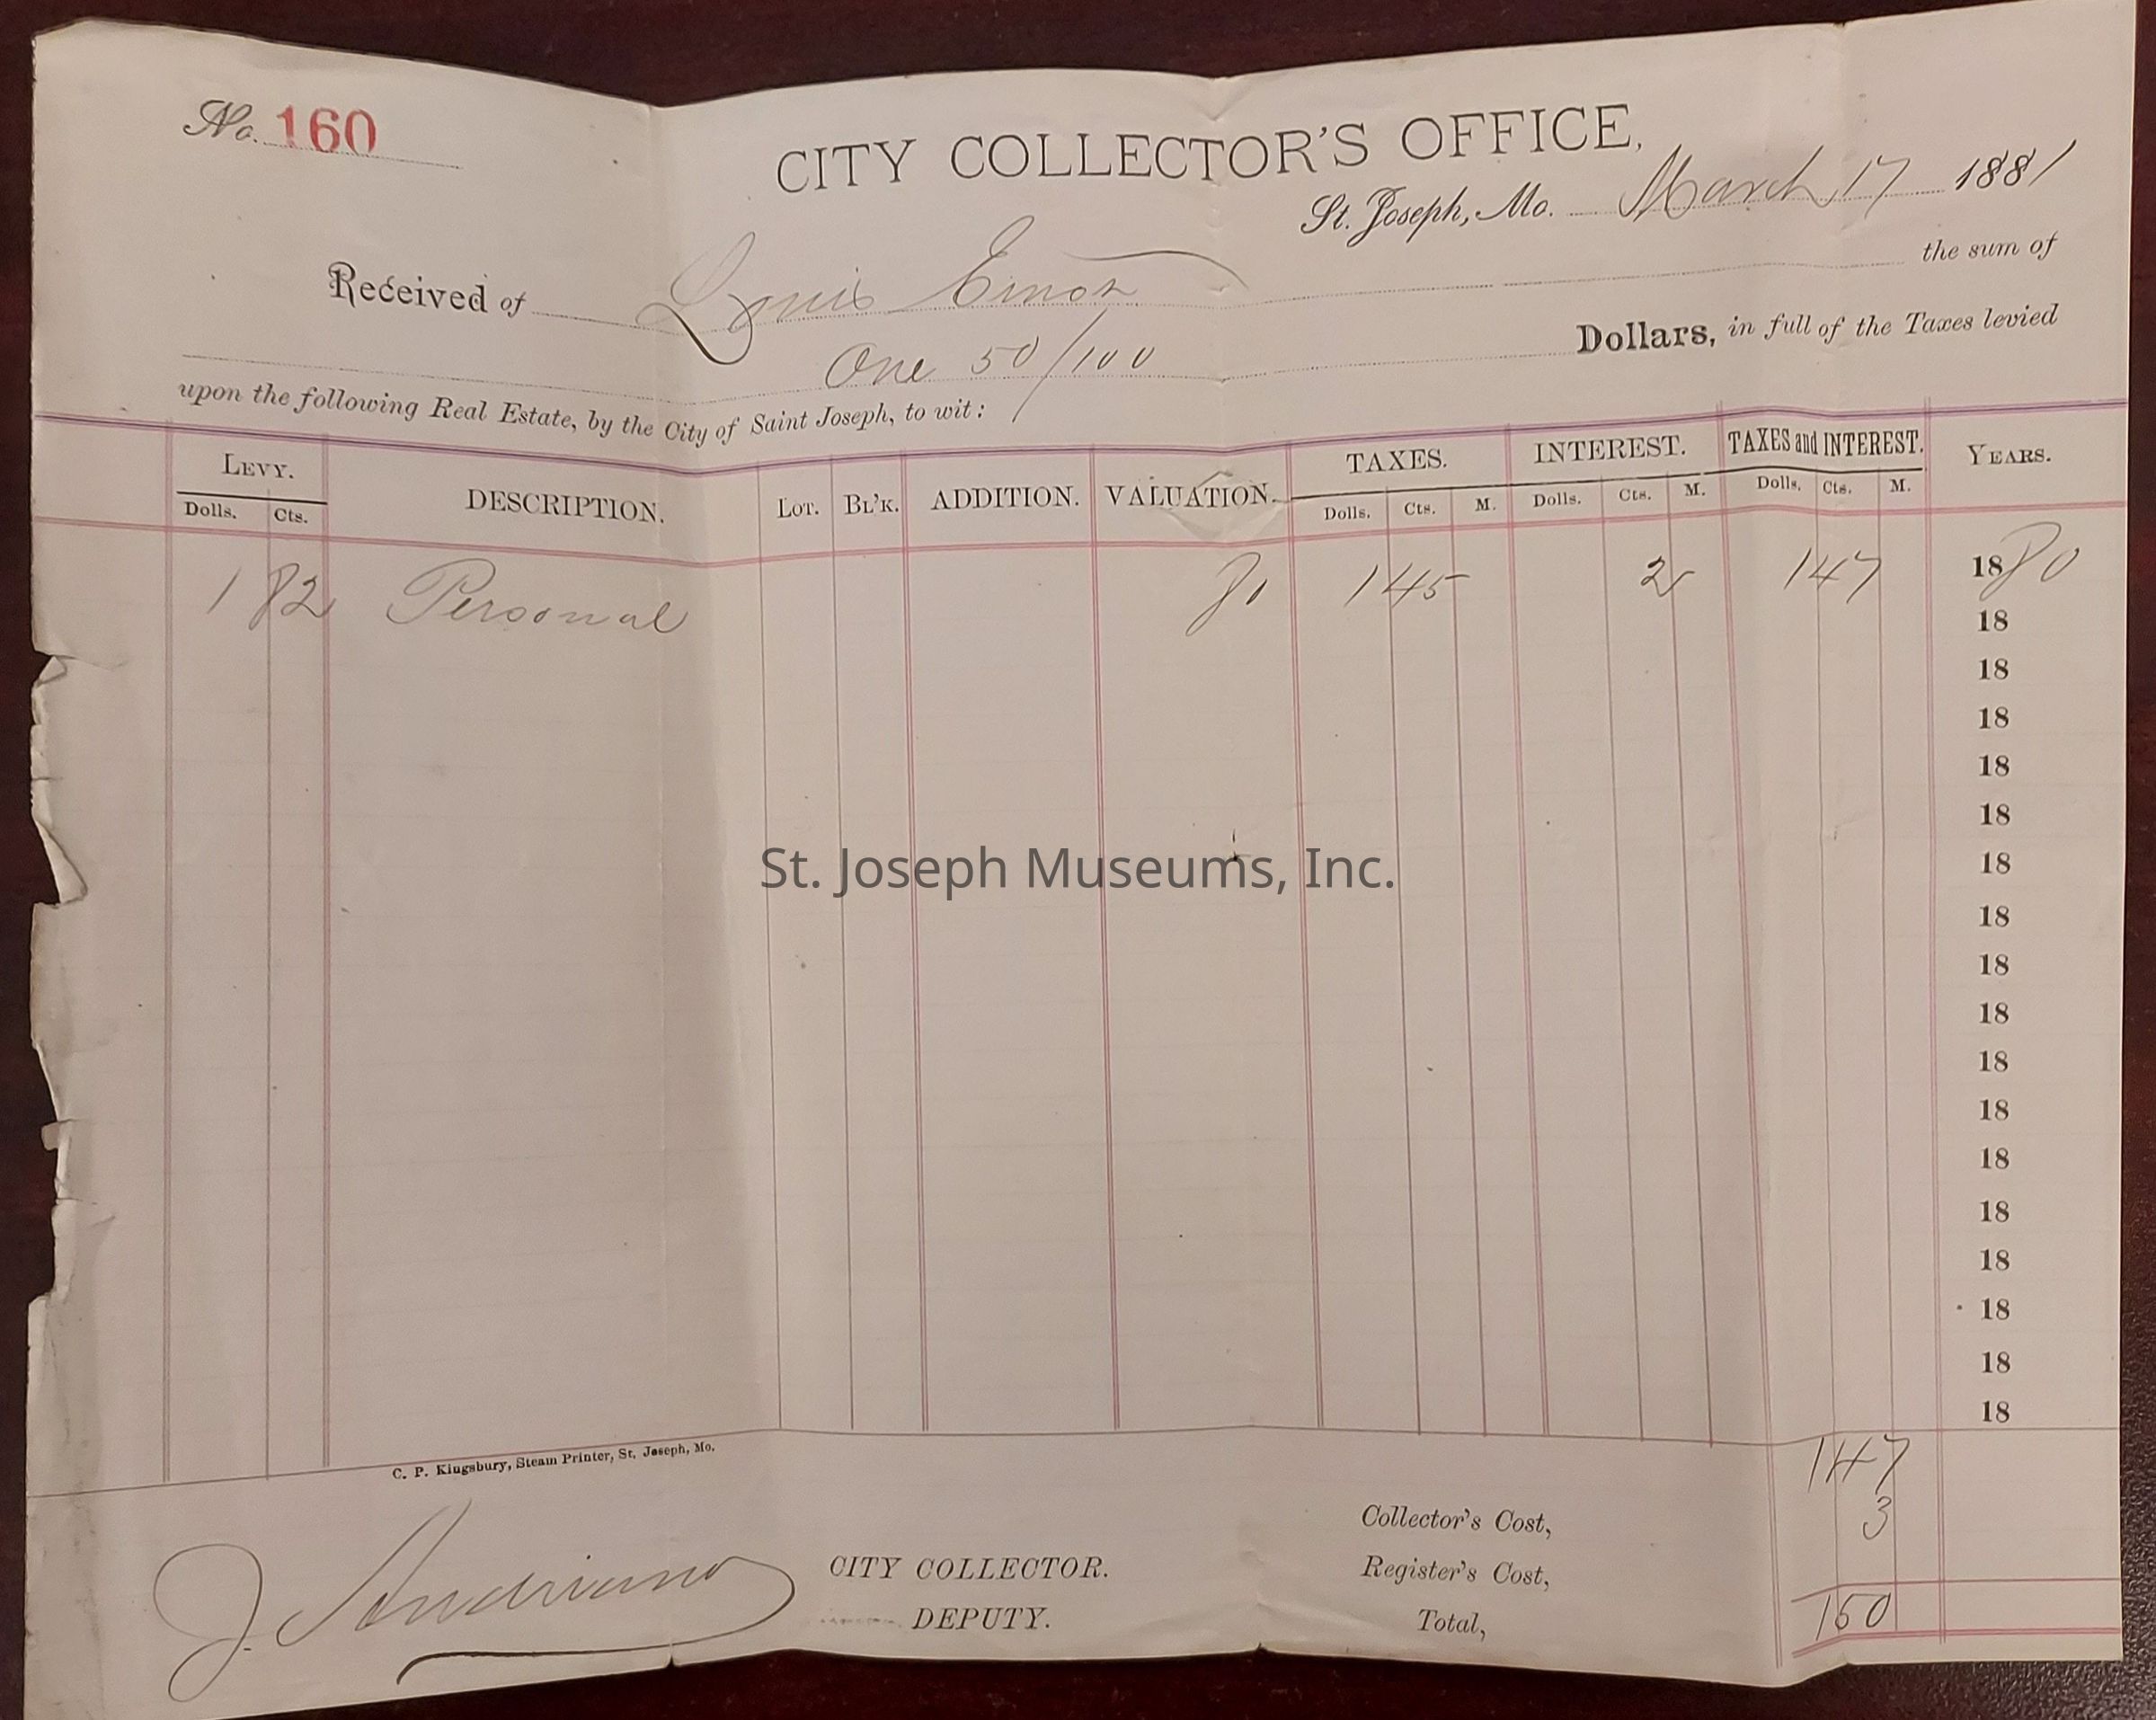 No. 160
CITY COLLECTOR'S OFFICE,
St. Joseph, Mo. March 17 1881
Received of Louis the sum of
One 50/100 Dollars, in full of the Taxes levied
upon the following Real Estate, by the City of Saint Joseph, to wit:
LEVY. DESCRIPTION. LOT. BL'K. ADDITION. VALUATION. TAXES. INTEREST. TAXES and INTEREST. YEARS.
Dolls. Cts. Dolls. Cts. M. Dolls. Cts. M. Dolls. Cts. M.
1 82 Personal 80 1 45 2 1 47 1880
18
18
18
18
18
St. Joseph Museums, Inc.
18
18
18
18
18
18
18
18
18
18
18
18
C. P. Kingsbury, Steam Printer, St. Joseph, Mo.
1 47
Collector's Cost, 3
J. Andriano CITY COLLECTOR. Register's Cost,
DEPUTY. Total, 1 50